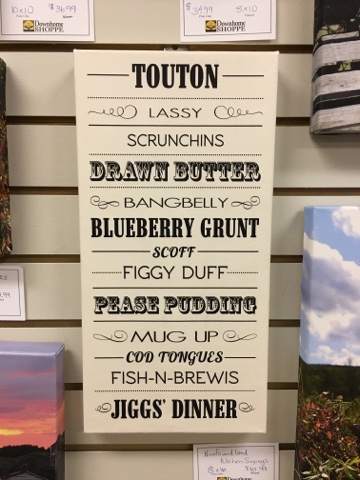 10x10 $36.99
Downhome
SHOPPE
$34.99 8x10
Downhome
SHOPPE
TOUTON
LASSY
SCRUNCHINS
DRAWN BUTTER
BANGBELLY
BLUEBERRY GRUNT
SCOFF
FIGGY DUFF
PEASE PUDDING
MUG UP
COD TONGUES
FISH-N-BREWIS
JIGGS' DINNER
Newfoundland
Kitchen Sayings
Downhome
SHOPPE